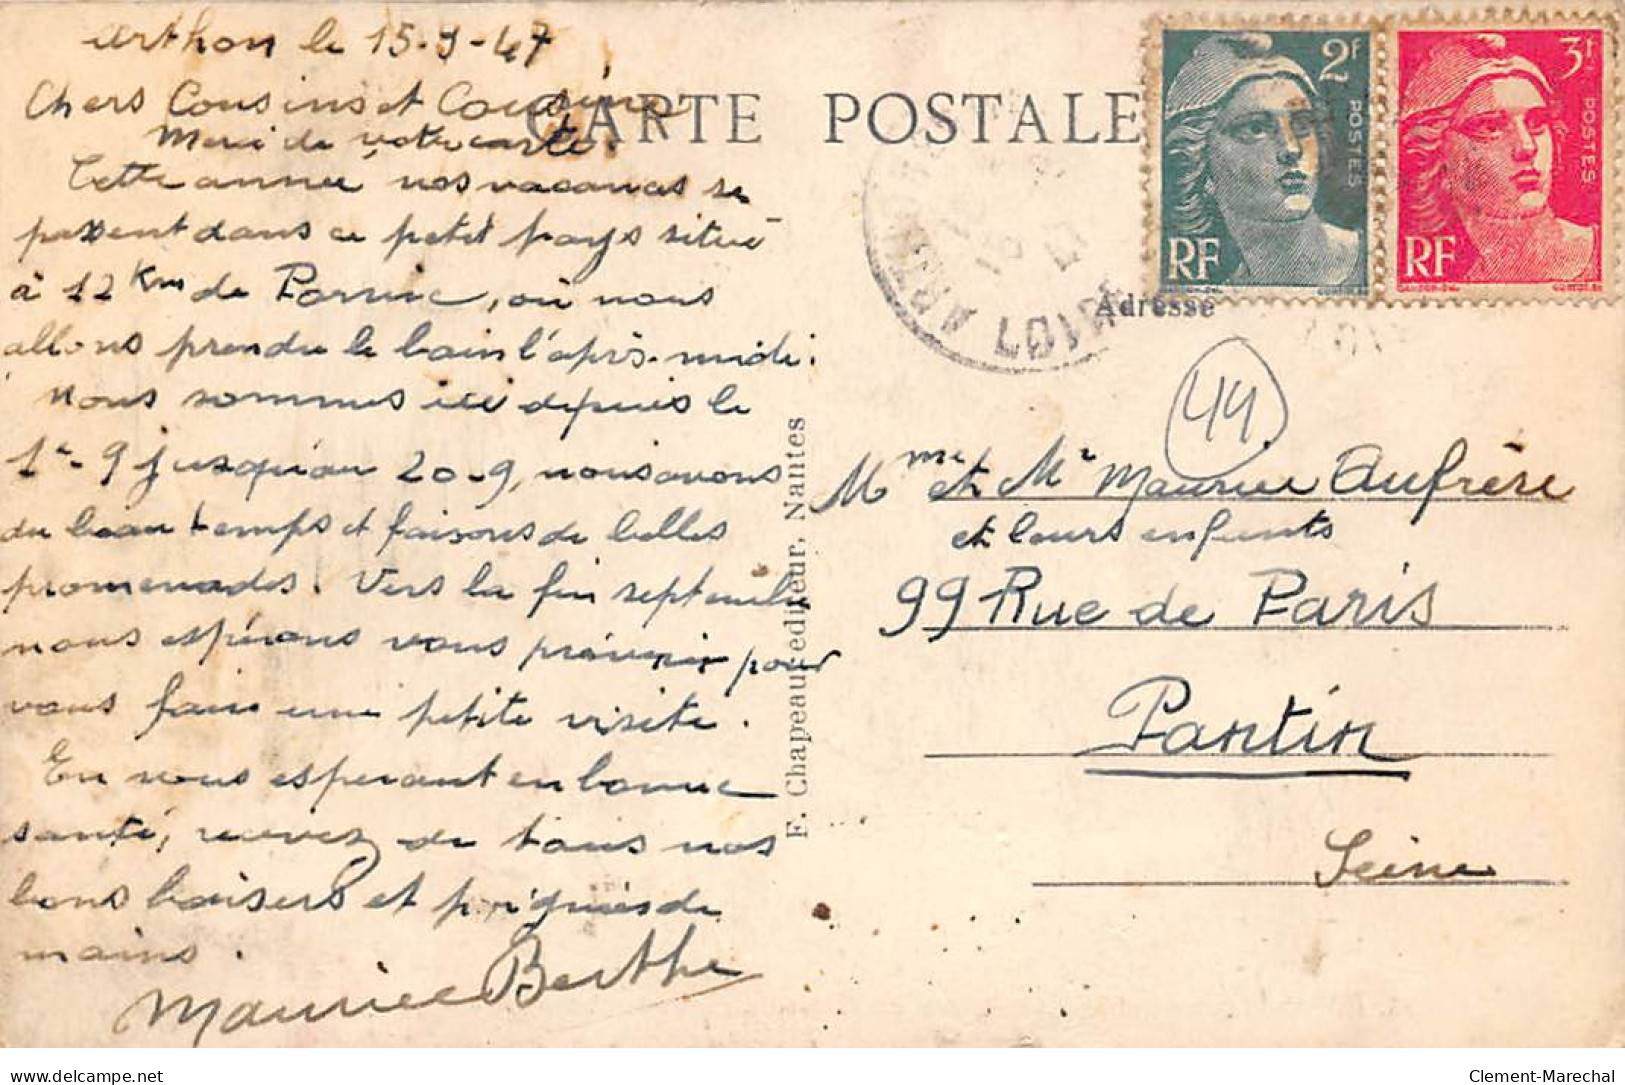 Arthon le 15-9-47
Chers Cousins et Cousine
Merci de votre carte.
Cette année nos vacances se
passent dans ce petit pays situé
à 12 Kms de Pornic, où nous
allons prendre le bain l'après-midi.
Nous sommes ici depuis le
1er-9 jusqu'au 20-9, nous avons
du beau temps et faisons de belles
promenades. Vers la fin septembre
nous espérons vous prévenir pour
vous faire une petite visite.
En vous espérant en bonne
santé, recevez de tous nos
bons baisers et poignées de
mains.
Maurice Berthe
CARTE POSTALE
F. Chapeau, editeur, Nantes
2f
POSTES
RF
3f
POSTES
RF
ARTHON
LOIRE
Adresse
44
Mme et Mr Maurice Aufrère
et leurs enfants
99 Rue de Paris
Pantin
Seine
Delcampe.net
Clement-Marechal